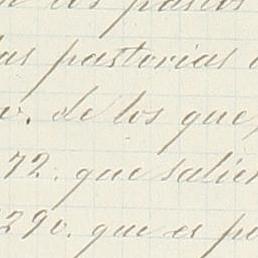 los pasos
las pastorias
de los que
72. que salier
290. que es po